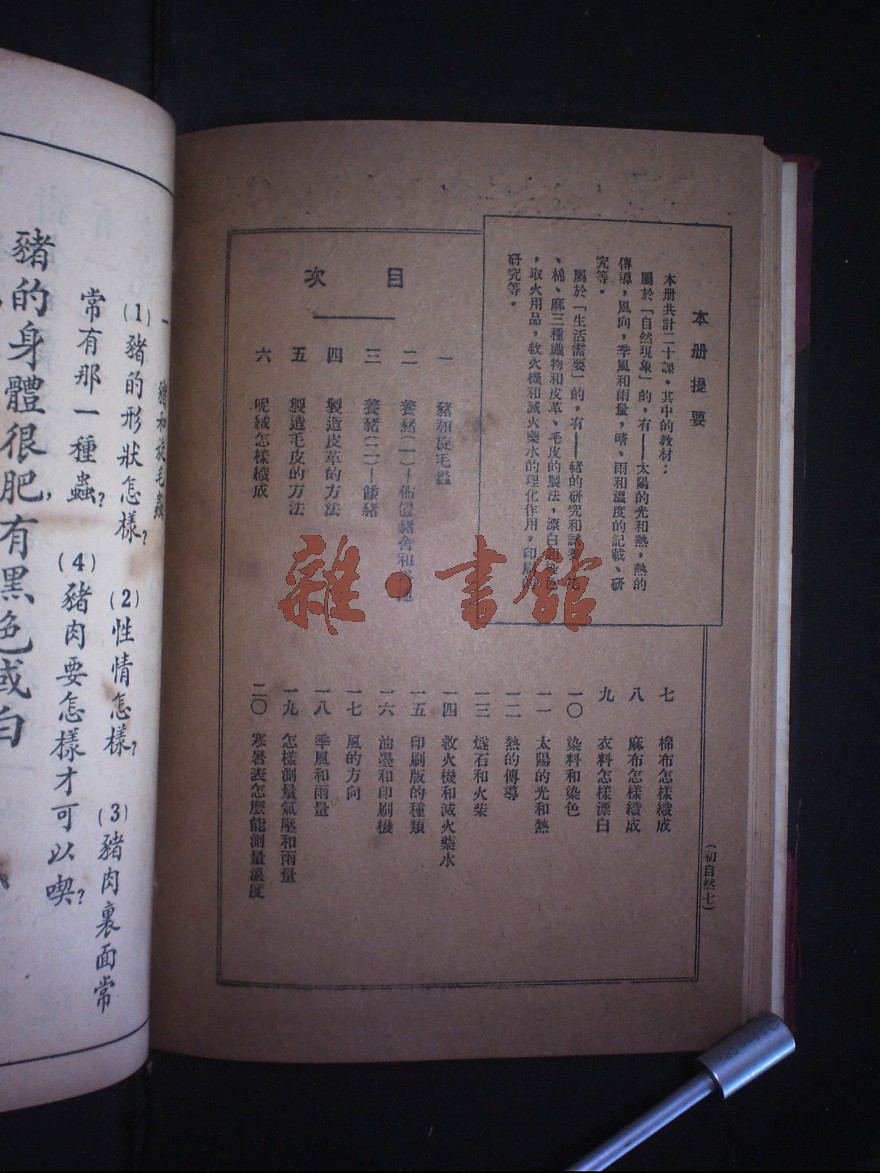 本册提要
本册共計二十課，其中的教材：
屬於「自然現象」的，有——太陽的光和熱，熱的
傳導，風向，季風和雨量，晴、雨和溫度的記載、研
究等。
屬於「生活需要」的，有——豬的研究和
、棉、麻三種織物和皮革、毛皮的製法，漂白
，取火用品，救火機和滅火藥水的理化作用，印刷的
研究等。
目次
一 豬和旋毛蟲
二 養豬（一）—佈置豬舍和
三 養豬（二）—餵豬
四 製造皮革的方法
五 製造毛皮的方法
六 呢絨怎樣織成
七 棉布怎樣織成
八 麻布怎樣織成
九 衣料怎樣漂白
一〇 染料和染色
一一 太陽的光和熱
一二 熱的傳導
一三 燧石和火柴
一四 救火機和滅火藥水
一五 印刷版的種類
一六 油墨和印刷機
一七 風的方向
一八 季風和雨量
一九 怎樣測量氣壓和雨量
二〇 寒暑表怎麼能測量溫度
（初自然七）
雜·書館
一 豬和旋毛蟲
(1)豬的形狀怎樣？(2)性情怎樣？(3)豬肉裏面常
常有那一種蟲？(4)豬肉要怎樣才可以喫？
豬的身體很肥，有黑色或白